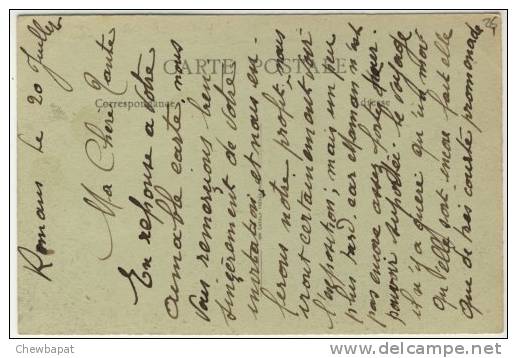 Romans le 20 Juillet
Ma Chère Tante
En reponse a votre
aimable carte nous
vous remercions bien
sincèrement de votre
invitation et nous en
ferons notre profit, nous
irons certainement voir
l'exposition; mais un peu
plus tard. car Maman n'est
pas encore assez forte pour
pouvoir suporter le voyage
il n'y a guère qu'un mois
qu'elle sort encore fait elle
que de très courte promenade
CARTE POSTALE
Correspondance
Adresse
© Chewbapat
http://www.delcampe.net